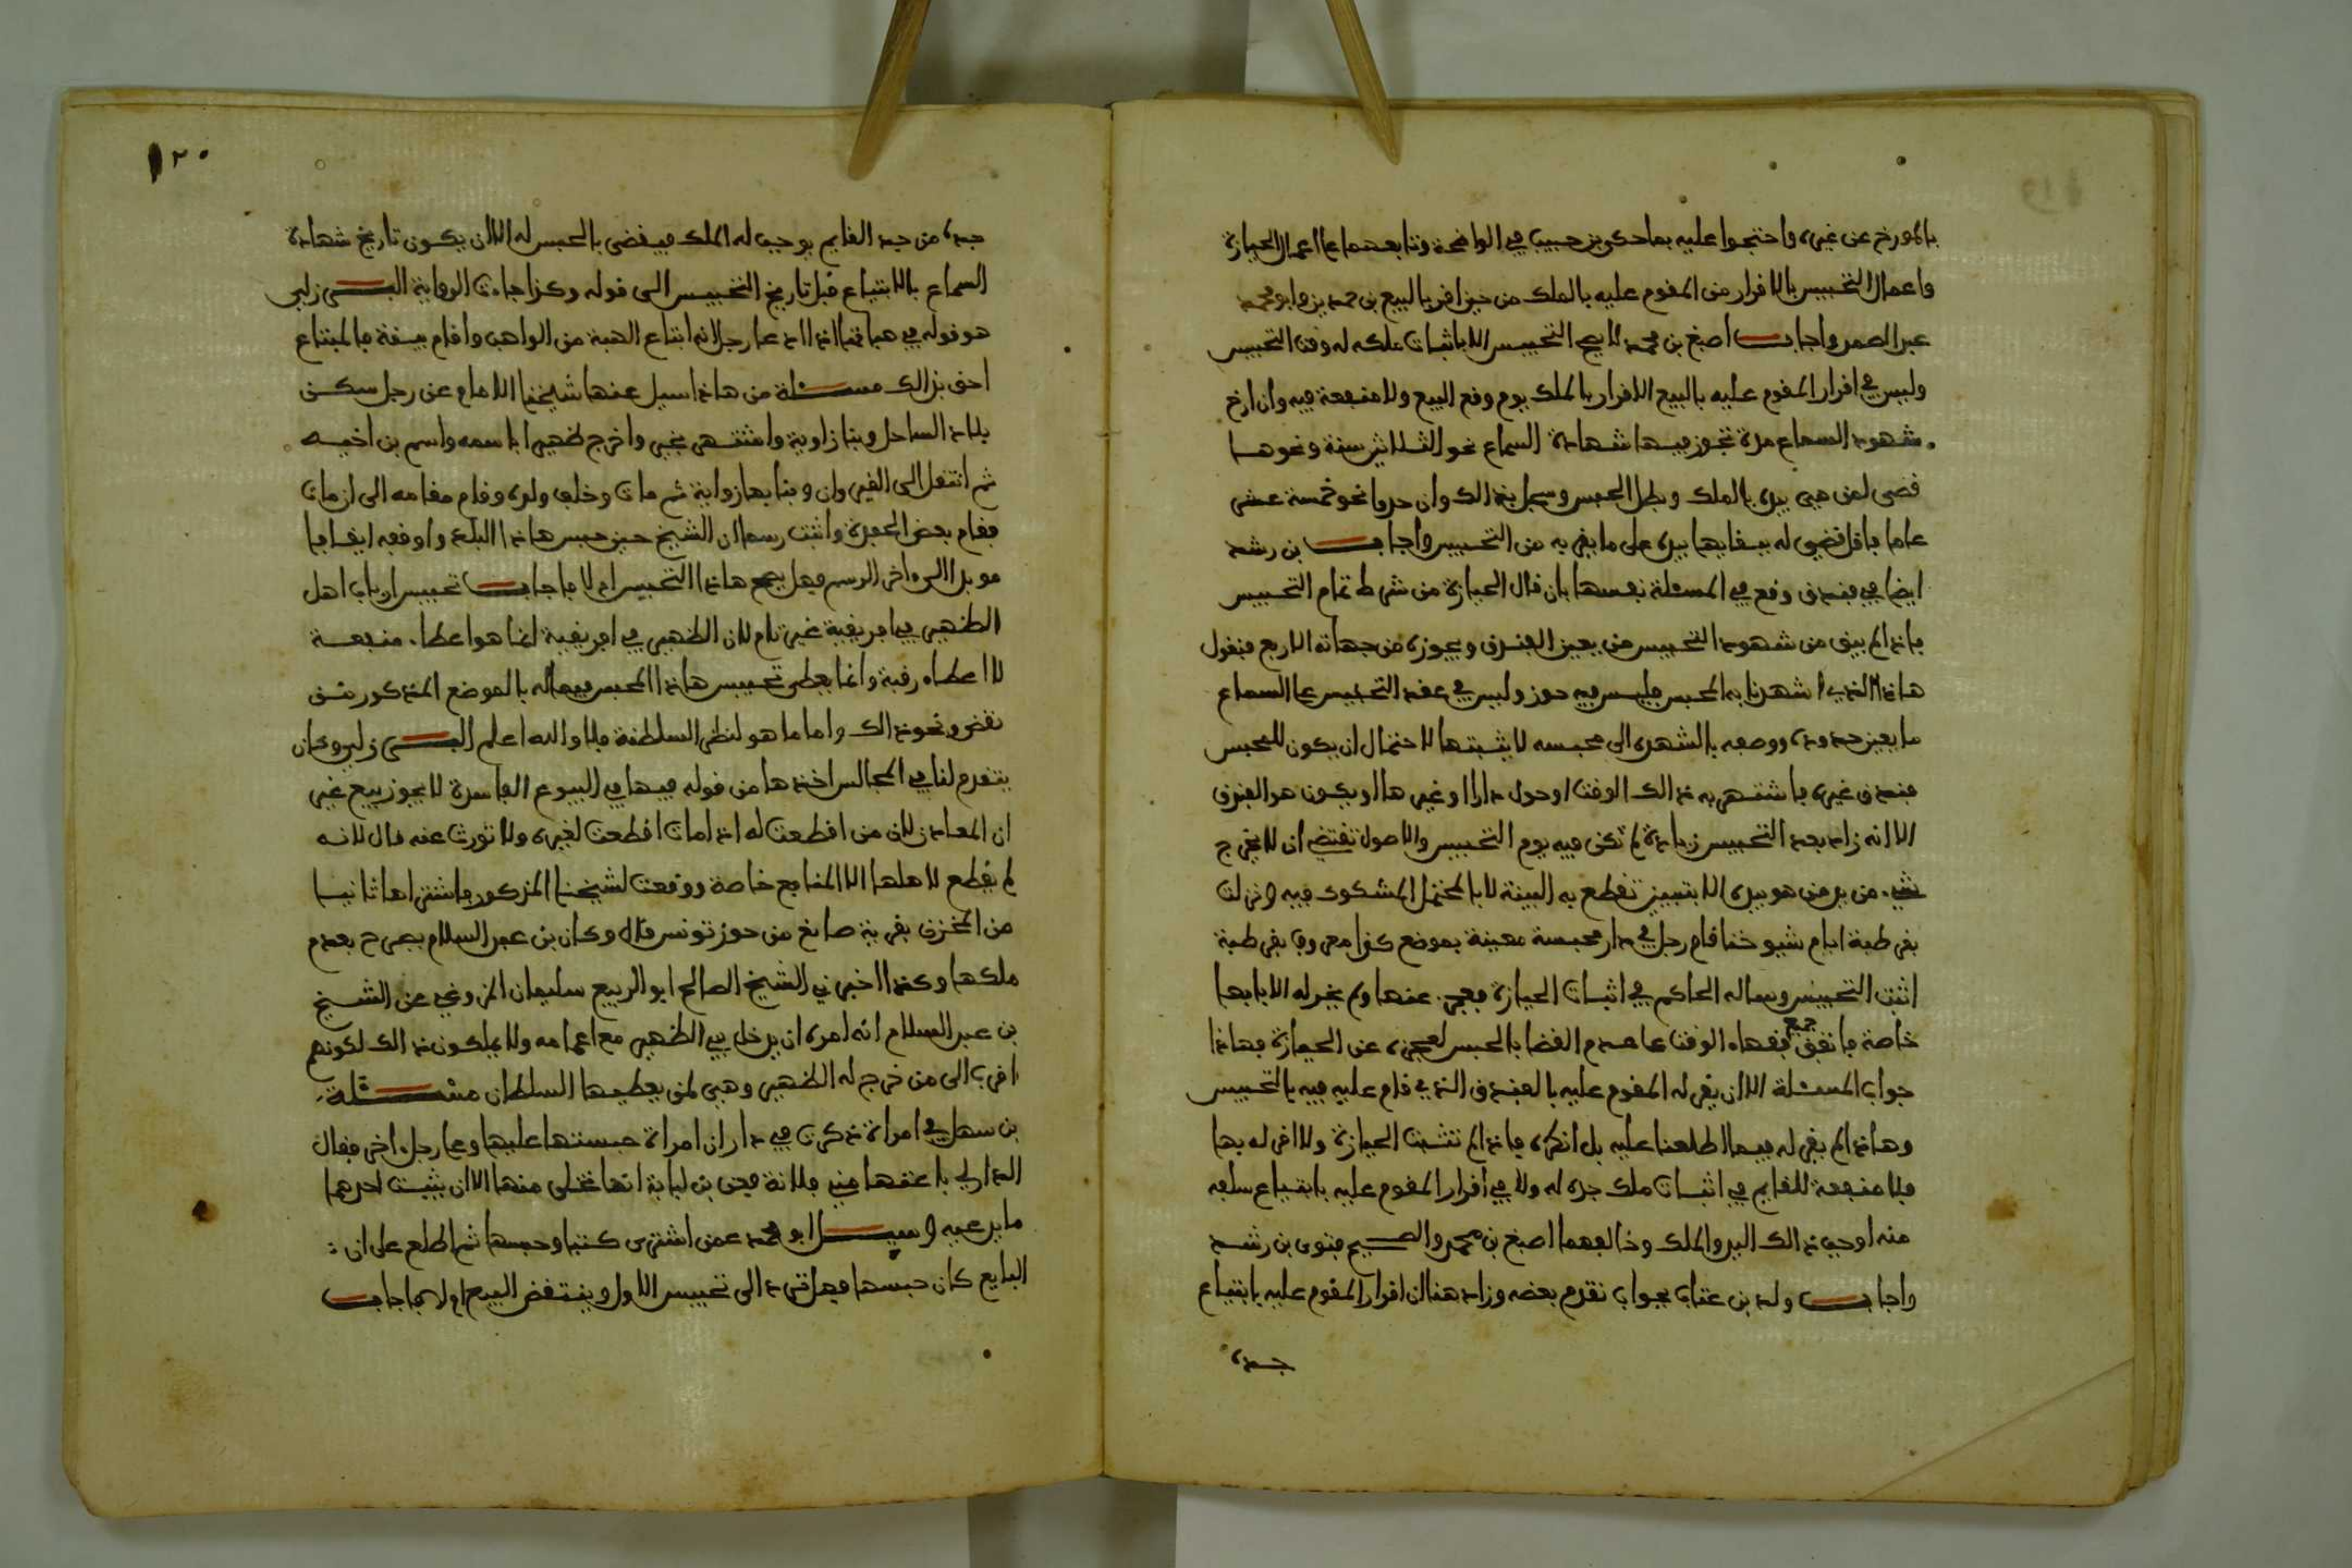 بالمورخ عن غيره واحتجوا عليه بما حكى بن حبيب في الواضحة وتابعهما على اعمال الحيازة
واعمال التحبيس بالاقرار من المقوم عليه بالملك من حين اقر بالبيع بن حمدين وابو محمد
عبد الصمد واجاب اصبغ بن محمد لا يصح التحبيس الا باثبات ملكه له وقت التحبيس
وليس في اقرار المقوم عليه بالبيع الاقرار بالملك يوم وقع البيع ولا منفعة فيه وان ارخ
شهود السماع مدة تجوز فيها شهادة السماع نحو الثلاثين سنة ونحوها
قضى لمن هي بيده بالملك وبطل الحبس وسجل بذالك وان حدوا نحو خمسة عشر
عاما فاقل قضي له ببقايها بيده على ما بقي به من التحبيس واجاب بن رشد
ايضا في فندق وقع في المسئلة نفسها بان قال الحيازة من شرط تمام التحبيس
فاذا لم يبق من شهود التحبيس من يعين الفندق ويحوزه من جهاته الاربع فيقول
هاذا الذي اشهدنا به المحبس فليس فيه حوز وليس في عقد التحبيس على السماع
ما يعين حدوده ووصفه بالشهرة الى محبسه لا يثبتها لاحتمال ان يكون للمحبس
فندق غيره فاشتهر به ذالك الوقت او حول دارا او غيرها او يكون هو الفندق
الا انه زاد بعد التحبيس زيادة لم تكن فيه يوم التحبيس والاصول تقتضي ان لا يخرج
شيء من يد من هو بيده الا بتبيين تقطع به البينة لا بالمحتمل المشكوك فيه ونزلت
بقرطبة ايام شيوخنا قام رجل في دار محبسة معينة بموضع كذا معروف بقرطبة
اثبت التحبيس وساله الحاكم في اثبات الحيازة فعجز عنها ولم يجز له الا بابها
خاصة فاتفق جميع فقهاء الوقت على عدم القضا بالحبس لعجزه عن الحيازة فهاذا
جواب المسئلة الا ان يقر له المقوم عليه بالفندق الذي قام عليه فيه بالتحبيس
وهاذا لم يقر له فيما اطلعنا عليه بل انكره فاذا لم تثبت الحيازة ولا اقر له بها
فلا منفعة للقايم في اثبات ملك جده له ولا في اقرار المقوم عليه بابتياع سلفه
منه اوجب ذالك اليد والملك وخالفهما اصبغ بن محمد والصحيح فتوى بن رشد
واجاب ولد بن عتاب بجواب تقدم بعضه وزاد هنا ان اقرار المقوم عليه بابتياع
جده
١٢٠
جده من جد القايم يوجب له الملك فيقضى بالحبس له الا ان يكون تاريخ شهادة
السماع بالابتياع قبل تاريخ التحبيس الى قوله وكذا جاءت الرواية البرزلي
هو قوله في هباتها اذا ادعا رجل انه ابتاع الهبة من الواهب واقام بينة فالمبتاع
احق بذالك مسئلة من هاذا سيل عنها شيخنا الامام عن رجل سكن
بلاد الساحل وبنا زاوية واشتهر بخير واخرج ظهيرا باسمه واسم بن اخيه
ثم انتقل الى القيروان وبنا بها زواية ثم مات وخلف ولده وقام مقامه الى ان مات
فقام بعض الحفدة واثبت رسما ان الشيخ حين حبس هاذا البلد واوقفه ايقافا
موبدا الى ءاخر الرسم فهل يصح هاذا التحبيس ام لا فاجاب تحبيس ارباب اهل
الظهير في افريقية غير تام لان الظهير في افريقية انما هو اعطاء منفعة
لا اعطاء رقبة وانما يعطى تحبيس هاذا المحبس فيما له بالموضع المذكور من
نقض ونحو ذالك واما ما هو لنظر السلطنة فلا والله اعلم البرزلي وكان
يتقدم لنا في المجالس اخذها من قوله فيها في البيوع الفاسدة لا يجوز بيع غير
ان المعادن لان من اقطعت له اذا مات اقطعت لغيره ولا تورث عنه قال لانه
لم يقطع لاهلها الا المنافع خاصة ووقعت لشيخنا المذكور فاشتراها ثانيا
من المخزن بقرية صانغ من حوز تونس قال وكان بن عبد السلام يصرح بعدم
ملكها وكذا اخبرني الشيخ الصالح ابو الربيع سليمان المزوغي عن الشيخ
بن عبد السلام انه امره ان يدخل في الظهير مع اعمامه ولا يملكون ذالك لكونهم
اقرب الى من خرج له الظهير وهي لمن يعطيها السلطان مسئلة
بن سهل في امراة ذكرت في دار ان امراة حبستها عليها وعلى رجل ءاخر فقال
الدار لي باعتها مني فلانة فعن بن لبابة انها تخلى منها الا ان يثبت احدهما
ما يدعيه وسيل ابو محمد عمن اشترى كتبا وحبسها ثم اطلع على ان
البايع كان حبسها فهل ترد الى تحبيس الاول وينتقض البيع ام لا فاجاب